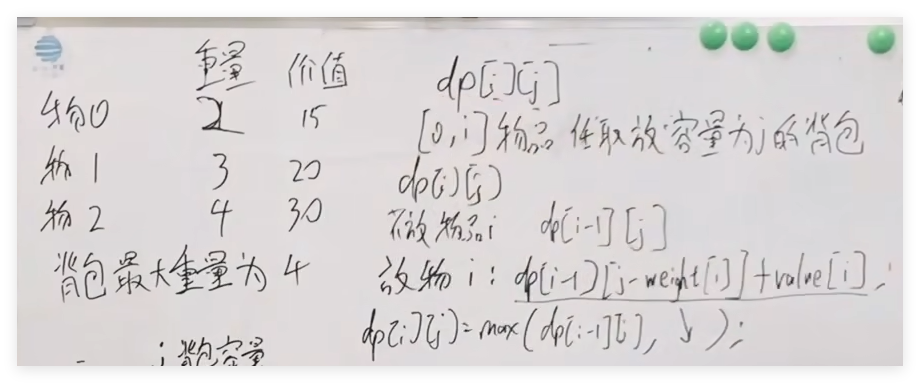 重量 价值
物0 2 15
物1 3 20
物2 4 30
背包最大重量为4
j背包容量
dp[i][j]
[0,i]物品 任取放容量为j的背包
dp[i][j]
不放物品i dp[i-1][j]
放物i: dp[i-1][j-weight[i]]+value[i];
dp[i][j]=max(dp[i-1][j], ↓ );